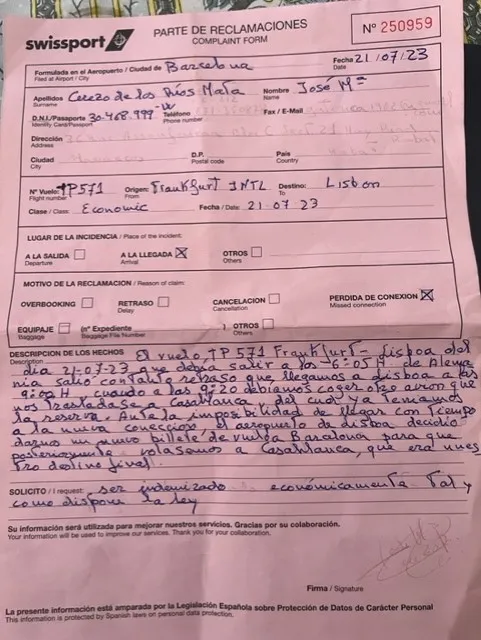 swissport
PARTE DE RECLAMACIONES
COMPLAINT FORM
Nº 250959
Formulada en el Aeropuerto / Ciudad de Barcelona
Filed at Airport / City
Fecha 21/07/23
Date
Apellidos Cerezo de los Ríos Mata
Surname
Nombre José Mª
Name
D.N.I./Pasaporte 30-468.999-W
Identity Card/Passport
Teléfono
Phone number
Fax / E-Mail
Dirección
Address
Ciudad
City
D.P.
Postal code
País
Country
Nº Vuelo: TP571
Flight number
Origen: Frankfurt INTL
From
Destino: Lisbon
To
Clase / Class: Economic
Fecha / Date: 21.07.23
LUGAR DE LA INCIDENCIA / Place of the incident:
A LA SALIDA
Departure
A LA LLEGADA
Arrival
OTROS
Others
MOTIVO DE LA RECLAMACIÓN / Reason of claim:
OVERBOOKING
RETRASO
Delay
CANCELACION
Cancellation
PERDIDA DE CONEXION
Missed connection
EQUIPAJE
Baggage
(nº Expediente
Baggage File Number
) OTROS
Others
DESCRIPCION DE LOS HECHOS El vuelo, TP571 Frankfurt - Lisboa del
Description
día 21-07-23 que debía salir a las 6:05 H de Alema
nia salió con tanto retraso que llegamos a Lisboa a las
9:00 H cuando a las 9:20 debíamos coger otro avion que
nos trasladase a Casablanca del cual ya teniamos
la reserva. Ante la imposibilidad de llegar con tiempo
a la nueva conección, el aeropuerto de Lisboa decidió
darnos un nuevo billete de vuelta Barcelona para que
posteriormente volasemos a Casablanca, que era nues
tro destino final.
SOLICITO / I request: ser indemizado económicamente tal y
como dispone la ley
Su información será utilizada para mejorar nuestros servicios. Gracias por su colaboración.
Your information will be used to improve our services. Thank you for your collaboration.
Firma / Signature
La presente información está amparada por la Legislación Española sobre Protección de Datos de Carácter Personal
This information is protected by Spanish laws on personal data protection.